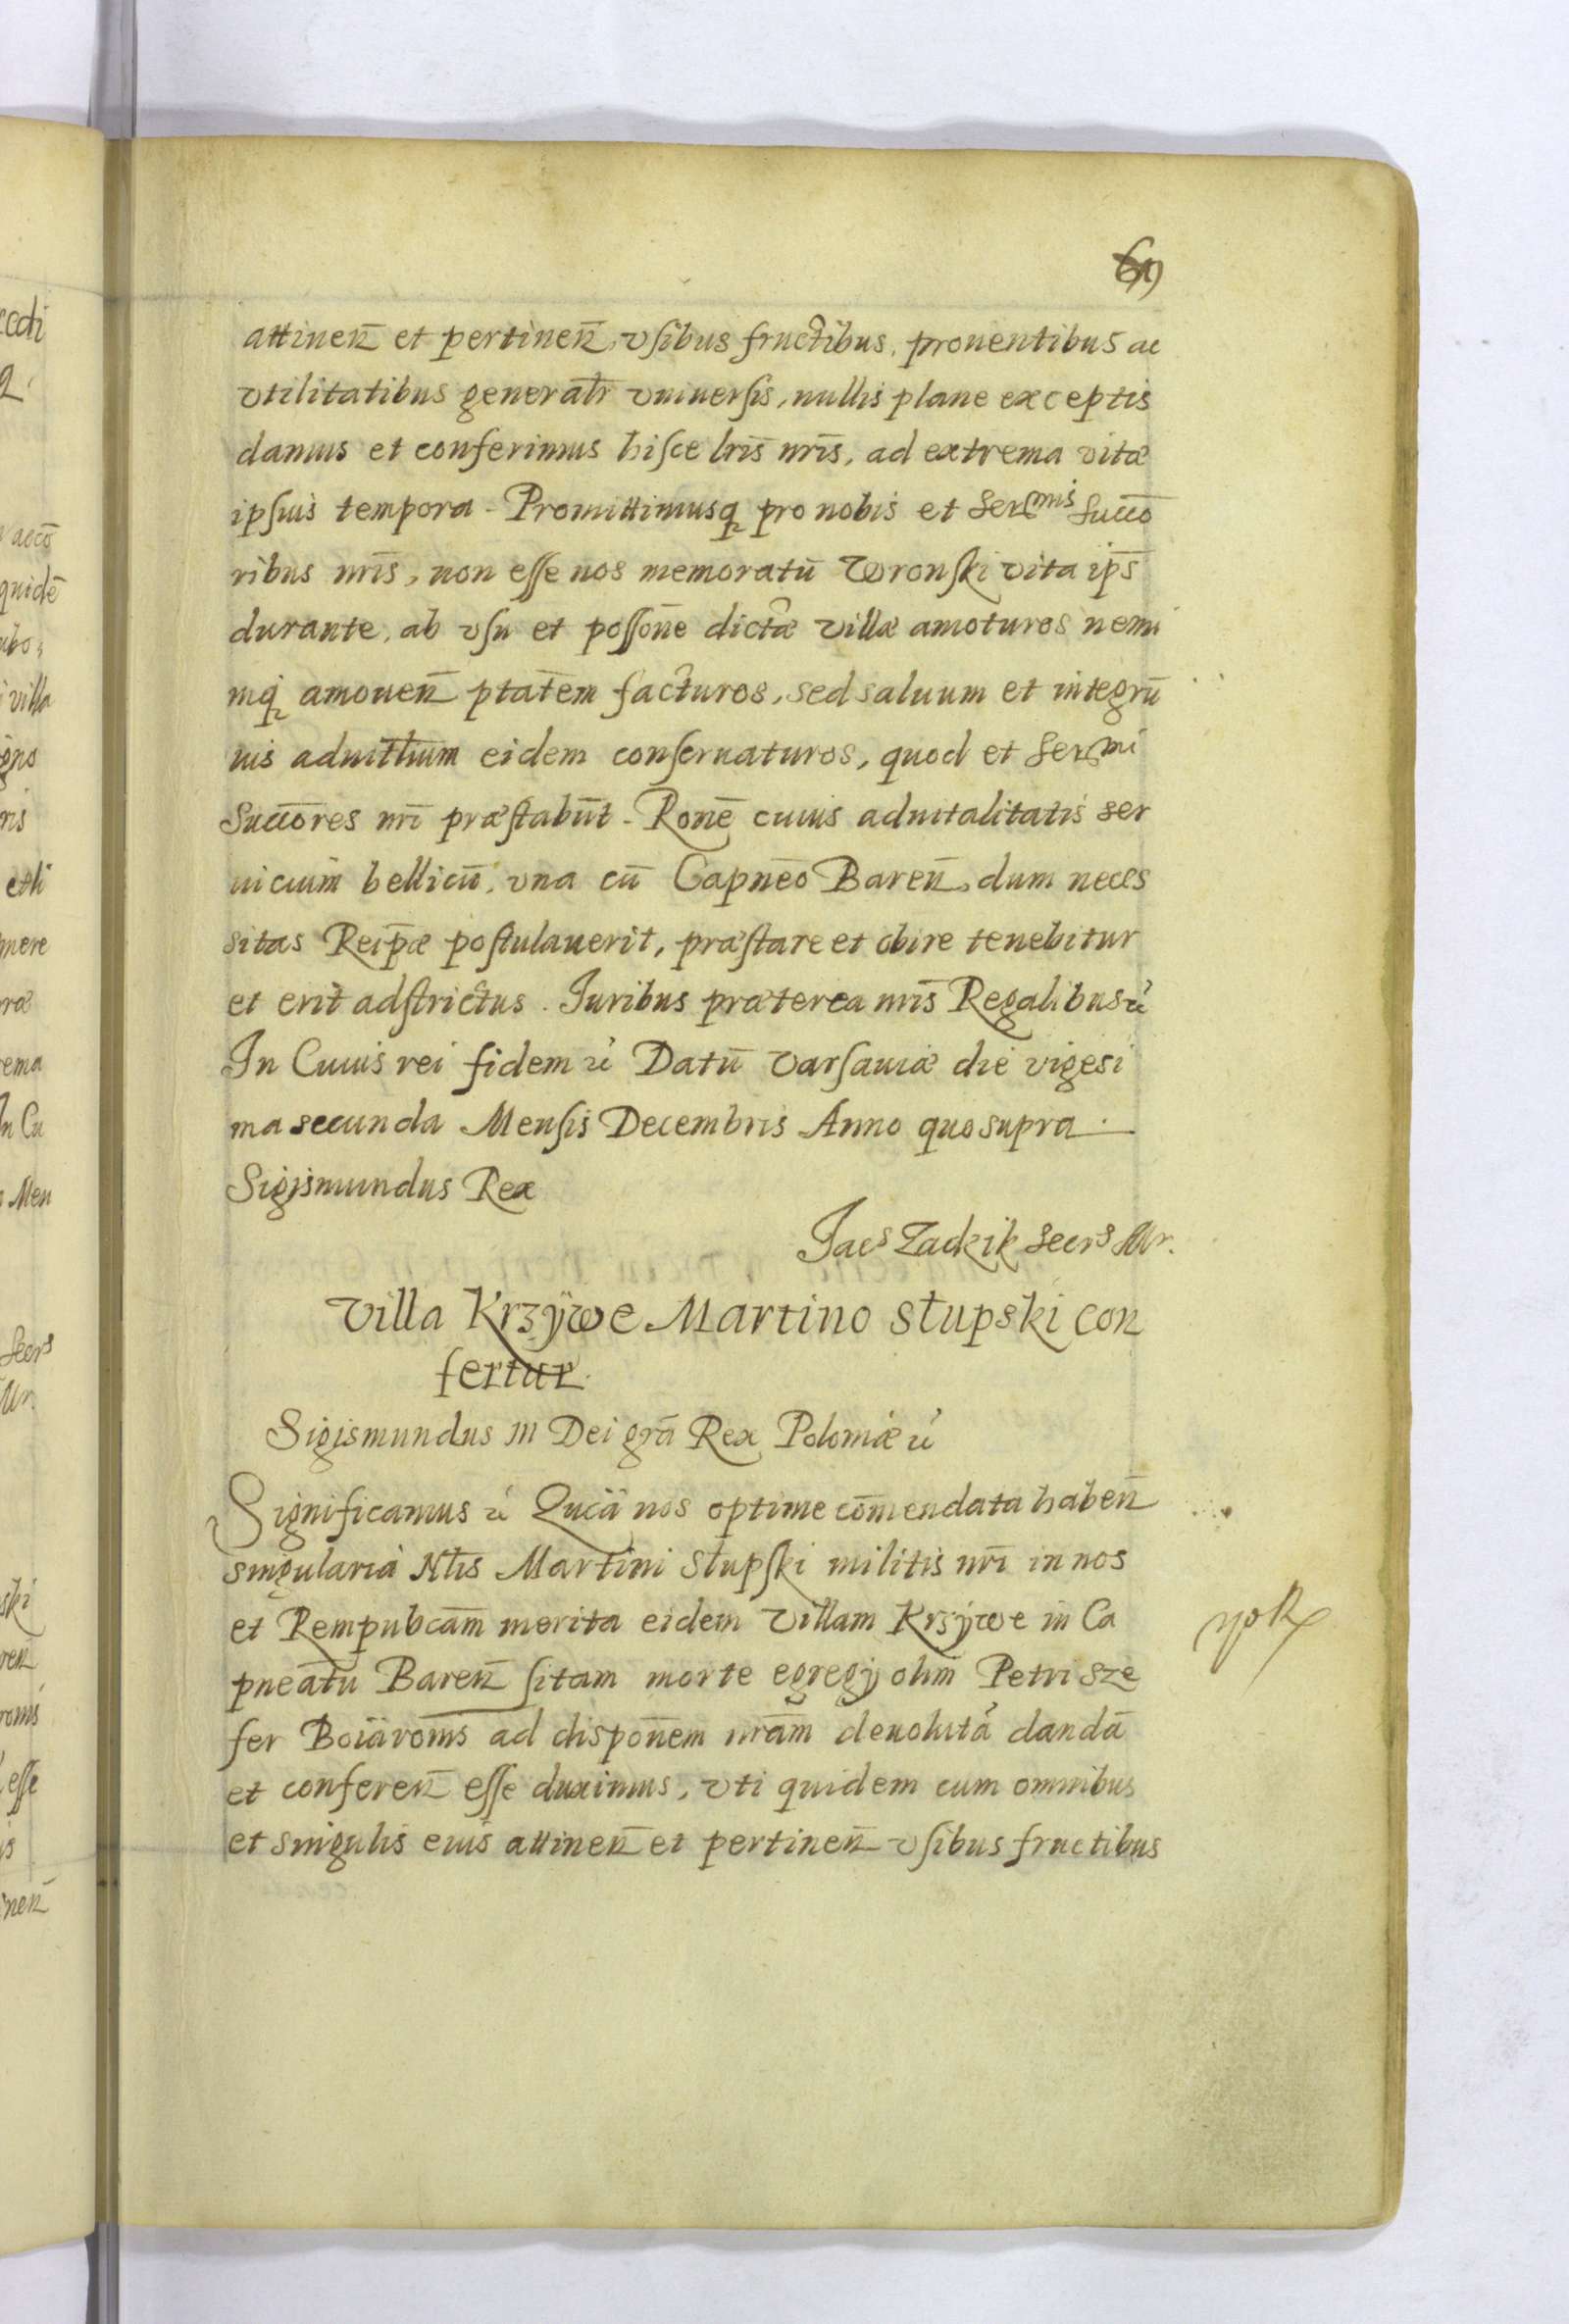 attinen̄ et pertinen̄, vſibus fructibus, prouentibus ac
vtilitatibus generalr̄ vniuerſis, nullis plane exceptis
damus et conferimus hiſce lris̄ nris̄, ad extrema vitæ
ipſius tempora - Promittimusq pro nobis et Serᵐⁱˢ Succo͞
ribus nris̄, non eſſe nos memoratū Wronſki vita ips̄
durante, ab vſu et poſſone̅ dictæ villæ amoturos nemi
niq amouen̄ ptatem̄ facturos, sed saluum et integrū
ius aduitl̄ium eidem conſeruaturos, quod et Serᵐⁱ
Succores̄ nri̅ præſtabūt - Rone̅ cuius aduitalitatis ser
uicium bellicū, vna cū Capneo̅ Baren̄, dum neces
sitas Reip̄æ poſtulauerit, præſtare et obire tenebitur
et erit adſtrictus. Juribus præterea nris̄ Regalibus ꝛč
In Cuius rei fidem ꝛč Datū Varſauiæ die vigesi
ma secunda Menſis Decembris Anno quo supra.
Sigismundus Rex
Jacˢ Zadzik Secrˢ Mr.
Villa Krzÿwe Martino Słupski con
fertur.
Sigismundus III Dei grā Rex Poloniæ ꝛč
Significamus ꝛč Quia nos optime com̄endata haben̄
singularia Nlis̄ Martini Słupſki militis nri̅ in nos
et Rempubcam̄ merita eidem Villam Krzÿwe in Ca
pneatu̅ Baren̄ ſitam morte egregij olim Petri Sze
fer Boiaronis ad dispone̅m nram̄ deuolutā dandā
et conferen̄ eſſe duximus, vti quidem cum omnibus
et singulis eius attinen̄ et pertinen̄ vſibus fructibus